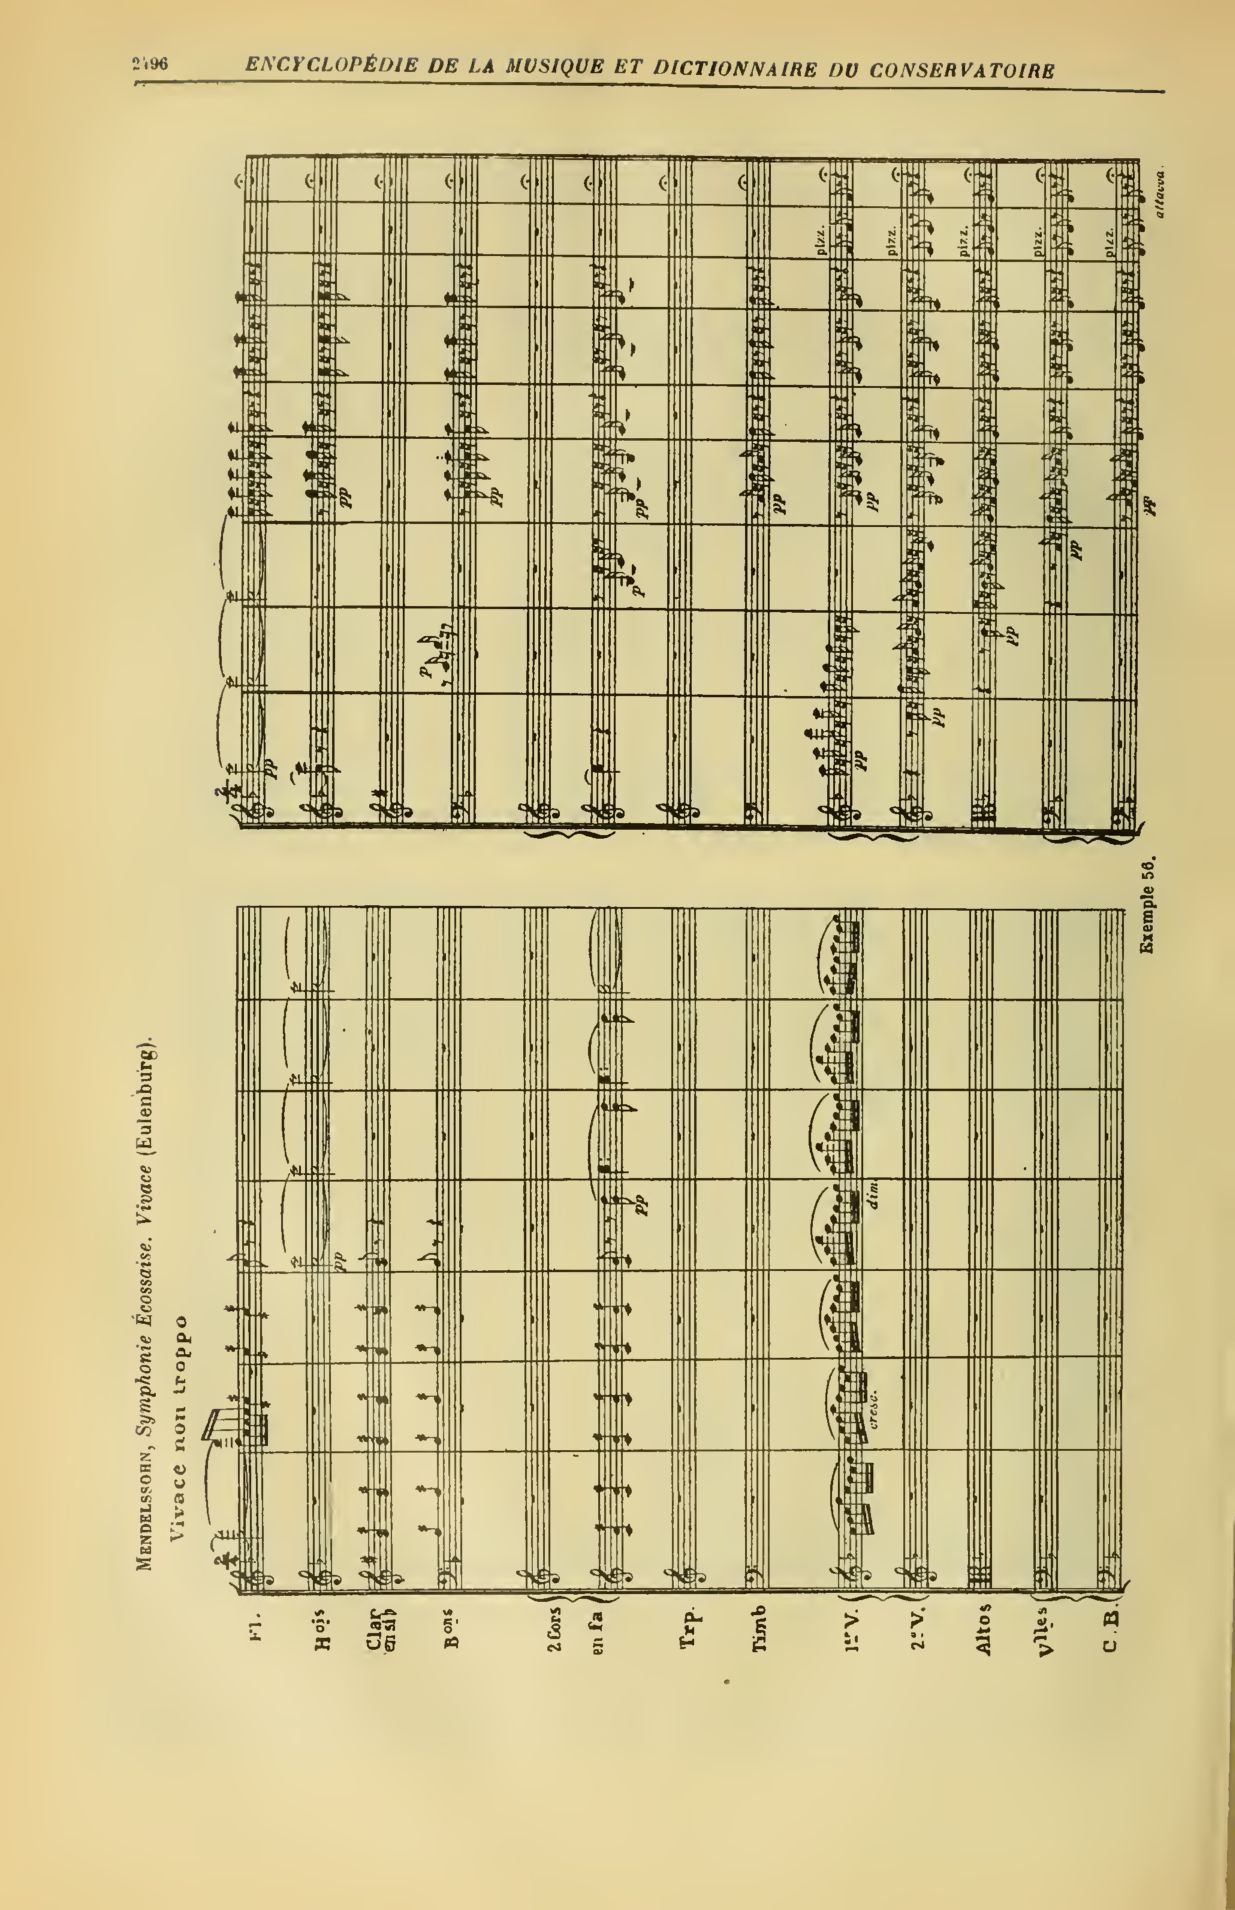 2496 ENCYCLOPÉDIE DE LA MUSIQUE ET DICTIONNAIRE DU CONSERVATOIRE
MENDELSSOHN, Symphonie Écossaise. Vivace (Eulenburg).
Vivace non troppo
2/4
Fl.
Hbois
pp
Clar.
en sib
Bons
2 Cors
en fa
pp
Trp.
Timb
1er V.
cresc.
dim.
2e V.
Altos
Vlles
C.B.
2/4
pp
pp
p
pp
p
pp
pp
pp
pp
pizz.
pp
pizz.
pp
pizz.
pp
pizz.
pp
pizz.
attacca.
Exemple 56.